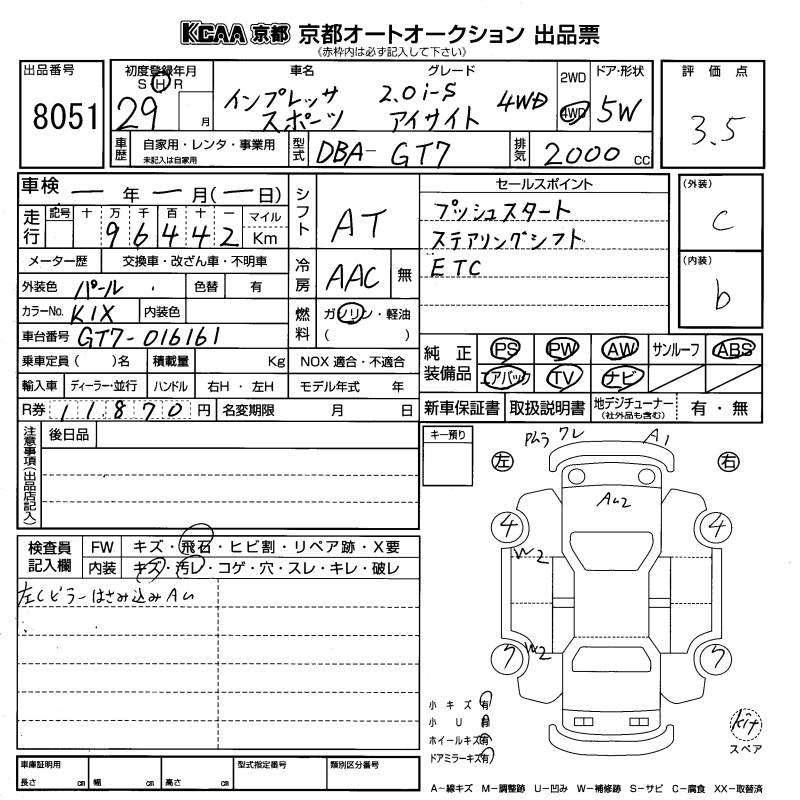 KCAA 京都 京都オートオークション 出品票
(赤枠内は必ず記入して下さい)
出品番号 8051
初度登録年月 S H R 29 月
車名 インプレッサ スポーツ
グレード 2.0i-S アイサイト 4WD
2WD 4WD
ドア・形状 5W
評価点 3.5
車歴 自家用・レンタ・事業用 未記入は自家用
型式 DBA- GT7
排気 2000 cc
車検 ー 年 ー 月(ー日)
シフト AT
セールスポイント
プッシュスタート
ステアリングシフト
ETC
(外装) C
(内装) b
走行 記号 十 万 千 百 十 一 マイル Km
9 6 4 4 2
メーター歴 交換車・改ざん車・不明車
冷房 AAC 無
外装色 パール 色替 有
カラーNo. K1X 内装色
燃料 ガソリン・軽油 ( )
車台番号 GT7-016161
乗車定員 ( )名 積載量 Kg NOX 適合・不適合
輸入車 ディーラー・並行 ハンドル 右H・左H モデル年式 年
R券 11870円 名変期限 月 日
純正装備品 PS PW AW サンルーフ ABS
エアバック TV ナビ
新車保証書 取扱説明書 地デジチューナー (社外品も含む) 有・無
注意事項(出品店記入) 後日品
キー預り
左 右
ワレ A1
AU2
4 4
W2
W2
7 7
検査員記入欄 FW キズ・飛石・ヒビ割・リペア跡・X要
内装 キズ・汚レ・コゲ・穴・スレ・キレ・破レ
左Cピラーはさみ込みAU
小キズ有
小U有
ホイールキズ有
ドアミラーキズ有
kit
スペア
車庫証明用 長さ cm 幅 cm 高さ cm 型式指定番号 類別区分番号
A-線キズ M-調整跡 U-凹み W-補修跡 S-サビ C-腐食 XX-取替済